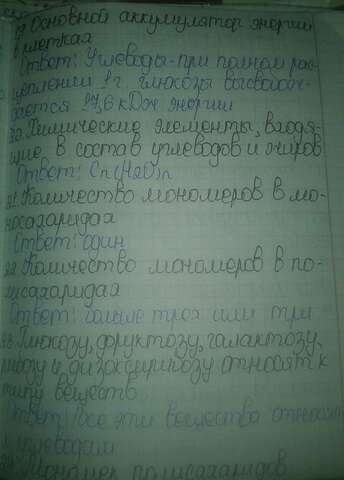 Основной аккумулятор энергии
в клетках
Ответ: Углеводы - при полном рас-
щеплении 1г. глюкозы высвобож-
дается 17,6 кДж энергии
Химические элементы, входя-
щие в состав углеводов и жиров
Ответ: Cn(H2O)n
Количество мономеров в мо-
носахаридах
Ответ: один
Количество мономеров в по-
лисахаридах
Ответ: больше трёх или три
Глюкозу, фруктозу, галактозу,
рибозу и дизоксирибозу относят к
типу веществ
Ответ: Все эти вещества относят
к углеводам
Мономер полисахаридов